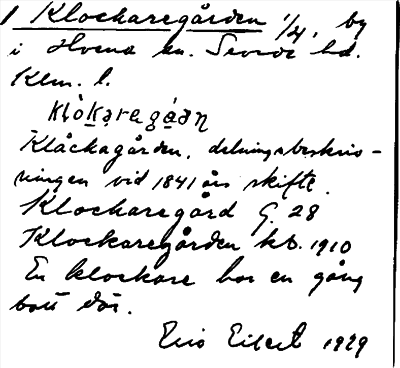 Klockaregården 1/4, by
i Hvena sn. Sevede hd.
Klm. l.
klòkaregáan
Klåckagården, delningsbeskris-
ningen vid 1841 års skifte.
Klockaregård G. 28
Klockaregården kb. 1910
En klockare har en gång
bott där.
Eric Eilert 1929